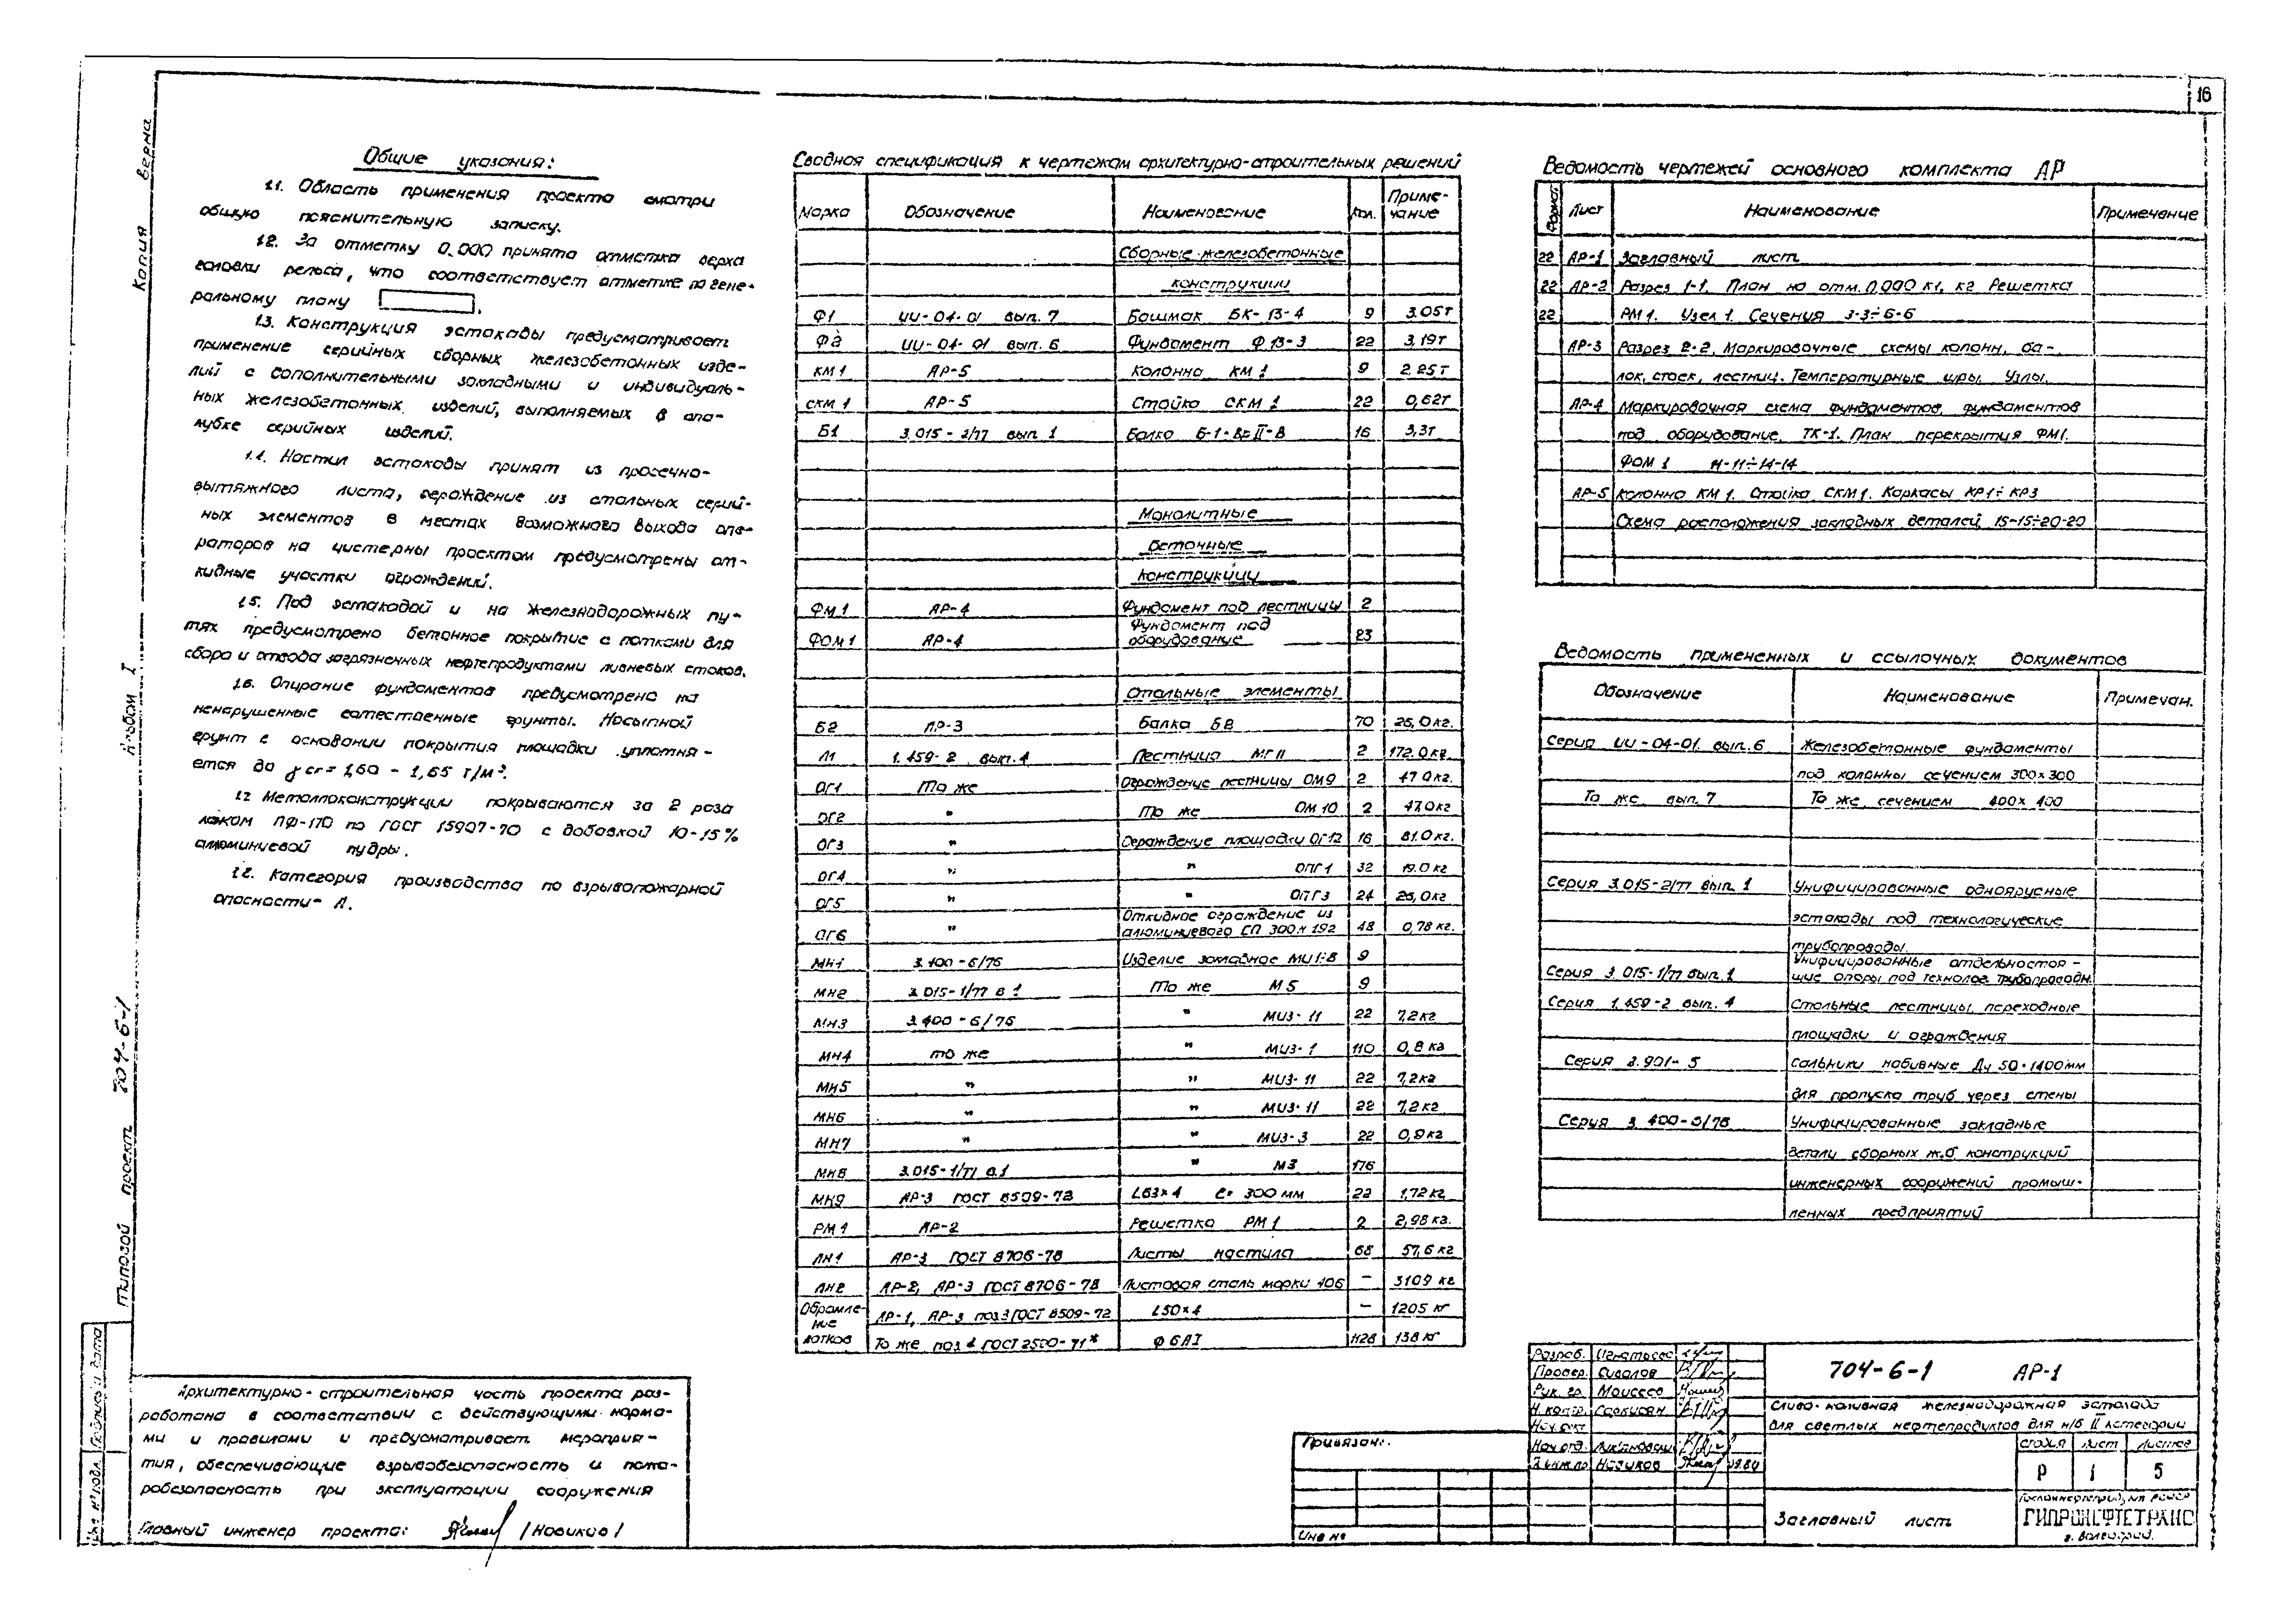 16
Копия верна
Альбом I
Типовой проект 704-6-1
Общие указания:
1.1. Область применения проекта смотри
общую пояснительную записку.
1.2. За отметку 0.000 принята отметка верха
головки рельса, что соответствует отметке по гене-
ральному плану
1.3. Конструкция эстакады предусматривает
применение серийных сборных железобетонных изде-
лий с дополнительными закладными и индивидуаль-
ных железобетонных изделий, выполняемых в опа-
лубке серийных изделий.
1.4. Настил эстакады принят из просечно-
вытяжного листа, ограждение из стальных серий-
ных элементов в местах возможного выхода опе-
раторов на цистерны проектом предусмотрены от-
кидные участки ограждений.
1.5. Под эстакадой и на железнодорожных пу-
тях предусмотрено бетонное покрытие с лотками для
сбора и отвода загрязненных нефтепродуктами ливневых стоков.
1.6. Опирание фундаментов предусмотрено на
ненарушенные естественные грунты. Насыпной
грунт в основании покрытия площадки уплотня-
ется до γск = 1,60 - 1,65 т/м³.
1.7. Металлоконструкции покрываются за 2 раза
лаком ПФ-170 по ГОСТ 15907-70 с добавкой 10-15%
алюминиевой пудры.
1.8. Категория производства по взрывопожарной
опасности - А.
Сводная спецификация к чертежам архитектурно-строительных решений
Марка Обозначение Наименование Кол. Приме-чание
Сборные железобетонные
конструкции
Ф1 ИИ-04-01 вып. 7 Башмак БК-13-4 9 3.05т
Ф2 ИИ-04-01 вып. 6 Фундамент Ф 13-3 22 3,19т
КМ1 АР-5 Колонна КМ1 9 2,25т
СКМ1 АР-5 Стойка СКМ1 22 0,62т
Б1 3.015-2/77 вып 1 Балка Б-1-ВрII-В 16 3,3т
Монолитные
бетонные
конструкции
ФМ1 АР-4 Фундамент под лестницы 2
ФОМ1 АР-4 Фундамент под оборудование 23
Стальные элементы
Б2 АР-3 Балка Б2 70 25,0 кг.
Л1 1.459-2 вып.4 Лестница МГ11 2 172.0 кг.
ОГ1 То же Ограждение лестницы ОМ9 2 47.0кг.
ОГ2 " То же ОМ10 2 47.0кг
ОГ3 " Ограждение площадки ОГ12 16 81.0 кг.
ОГ4 " " ОПГ1 32 19.0 кг
ОГ5 " " ОПГ3 24 25,0кг
ОГ6 " Откидное ограждение из алюминиевого СП 300х192 48 0,78 кг.
МН1 3.400-6/76 Изделие закладное МИ1-8 9
МН2 3.015-1/77 в 1 То же М5 9
МН3 3.400-6/76 " МИ3-11 22 7,2кг
МН4 то же " МИ3-1 110 0,8 кг
МН5 " " МИ3-11 22 7,2кг
МН6 " " МИ3-11 22 7,2 кг
МН7 " " МИ3-3 22 0,9кг
МН8 3.015-1/77 в.1 " М3 176
МН9 АР-3 ГОСТ 8509-72 L63×4 ℓ= 300 мм 22 1,72 кг
РМ1 АР-2 Решетка РМ1 2 2,98 кг.
ЛН1 АР-3 ГОСТ 8706-78 Листы настила 68 57,6 кг
ЛН2 АР-2, АР-3 ГОСТ 8706-78 Листовая сталь марки 406 — 3109 кг
Обрамле-ние лотков АР-1, АР-3 поз3 ГОСТ 8509-72 L50×4 — 1205 кг
То же поз 4 ГОСТ 2590-71* Ф 6АI 1126 138 кг
Ведомость чертежей основного комплекта АР
Формат Лист Наименование Примечание
22 АР-1 Заглавный лист
22 АР-2 Разрез 1-1. План на отм. 0.000 К1, К2 Решетка
22 РМ1. Узел 1. Сечения 3-3÷6-6
АР-3 Разрез 2-2. Маркировочные схемы колонн, ба-
лок, стоек, лестниц. Температурные швы. Узлы.
АР-4 Маркировочная схема фундаментов, фундаментов
под оборудование. ТК-1. План перекрытия ФМ1.
ФОМ1 11-11÷14-14
АР-5 Колонна КМ1. Стойка СКМ1. Каркасы КР1÷КР3
Схема расположения закладных деталей, 15-15÷20-20
Ведомость примененных и ссылочных документов
Обозначение Наименование Примечан.
Серия ИИ-04-01. вып.6 Железобетонные фундаменты
под колонны сечением 300×300
То же вып. 7 То же, сечением 400×400
Серия 3.015-2/77 вып. 1 Унифицированные одноярусные
эстакады под технологические
трубопроводы.
Серия 3.015-1/77 вып. 1 Унифицированные отдельностоя-
щие опоры под технолог. трубопроводы.
Серия 1.459-2 вып. 4 Стальные лестницы, переходные
площадки и ограждения
Серия 3.901-5 Сальники набивные Ду 50-1400мм
для пропуска труб через стены
Серия 3.400-6/76 Унифицированные закладные
детали сборных ж.б. конструкций
инженерных сооружений промыш-
ленных предприятий
Архитектурно-строительная часть проекта раз-
работана в соответствии с действующими норма-
ми и правилами и предусматривает мероприя-
тия, обеспечивающие взрывобезопасность и пожа-
робезопасность при эксплуатации сооружения
Главный инженер проекта: /Новиков/
Подпись и дата
Инв № подл.
Привязан:
Инв №
Разраб.
Провер.
Рук. гр. Моисеев
Н. контр. Саркисян
Нач. отд.
Новиков
704-6-1 АР-1
Сливо-наливная железнодорожная эстакада
для светлых нефтепродуктов для н/б II категории
стадия лист листов
Р 1 5
Заглавный лист
ГИПРОНЕФТЕТРАНС
г. Волгоград.